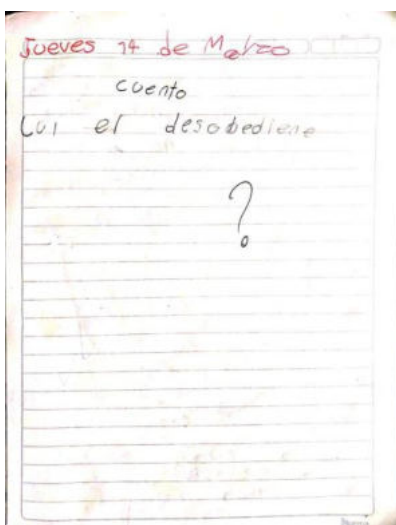 Jueves 14 de Marzo
cuento
Lui el desobediene
?